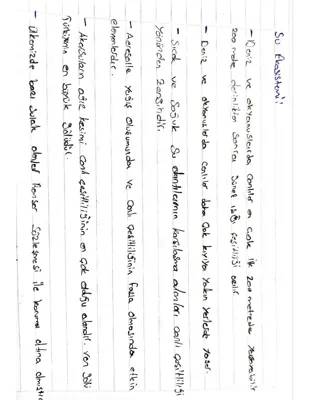 Su Ekosistemi:
- Deniz ve okyanuslarda canlılar en çok ilk 200 metrede yaşamaktadır
200 metre derinlikten sonra güneş ışığı
- Deniz ve okyanuslarda canlılar daha çok kıyıya yakın yerlerde yaşar.
- Sıcak ve Soğuk Su akıntılarının karşılaşma alanları canlı çeşitliliği
Yönünden Zengindir.
- yağış oluşumunda ve canlı çeşitliliğinin fazla olmasında etkin
elementlerdir.
- Akarsuların ağız kesimi canlı çeşitliliğinin en çok olduğu alandır. Van Gölü
Türkiyenin en büyük gölüdür.
- Ülkemizde bazı sulak alanlar Ramsar Sözleşmesi ile koruma altına almıştır